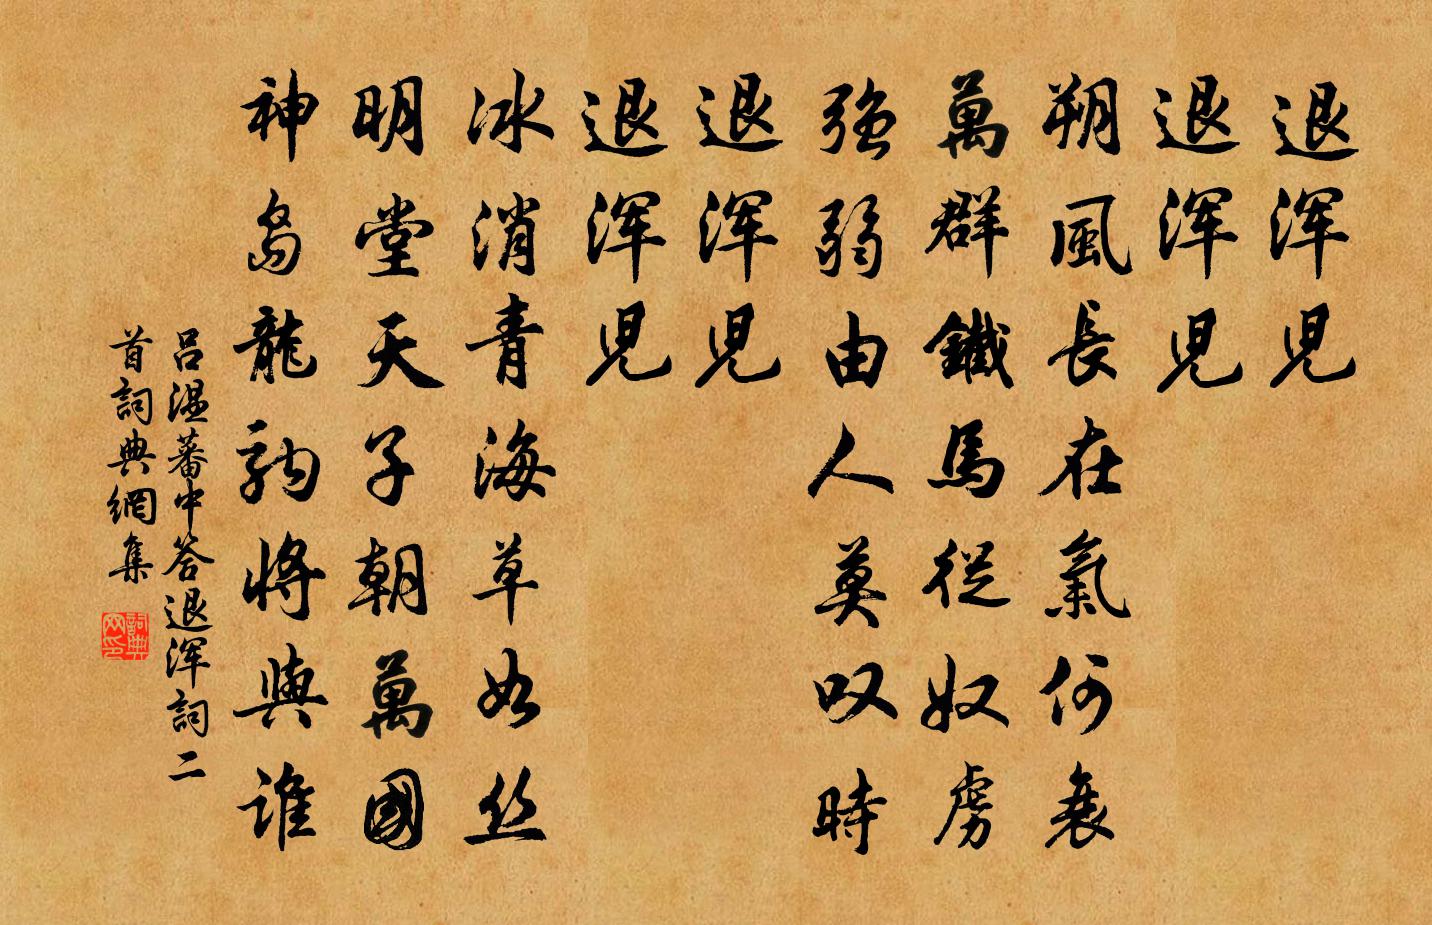 退浑児
退浑児
朔風長在氣何衰
萬群鐵馬從奴虜
强弱由人莫叹時
退浑児
退浑児
冰消青海草如丝
明堂天子朝萬國
神岛龍駒將與谁
呂温蕃中答退浑詞二
首詞典網集
詞典网印